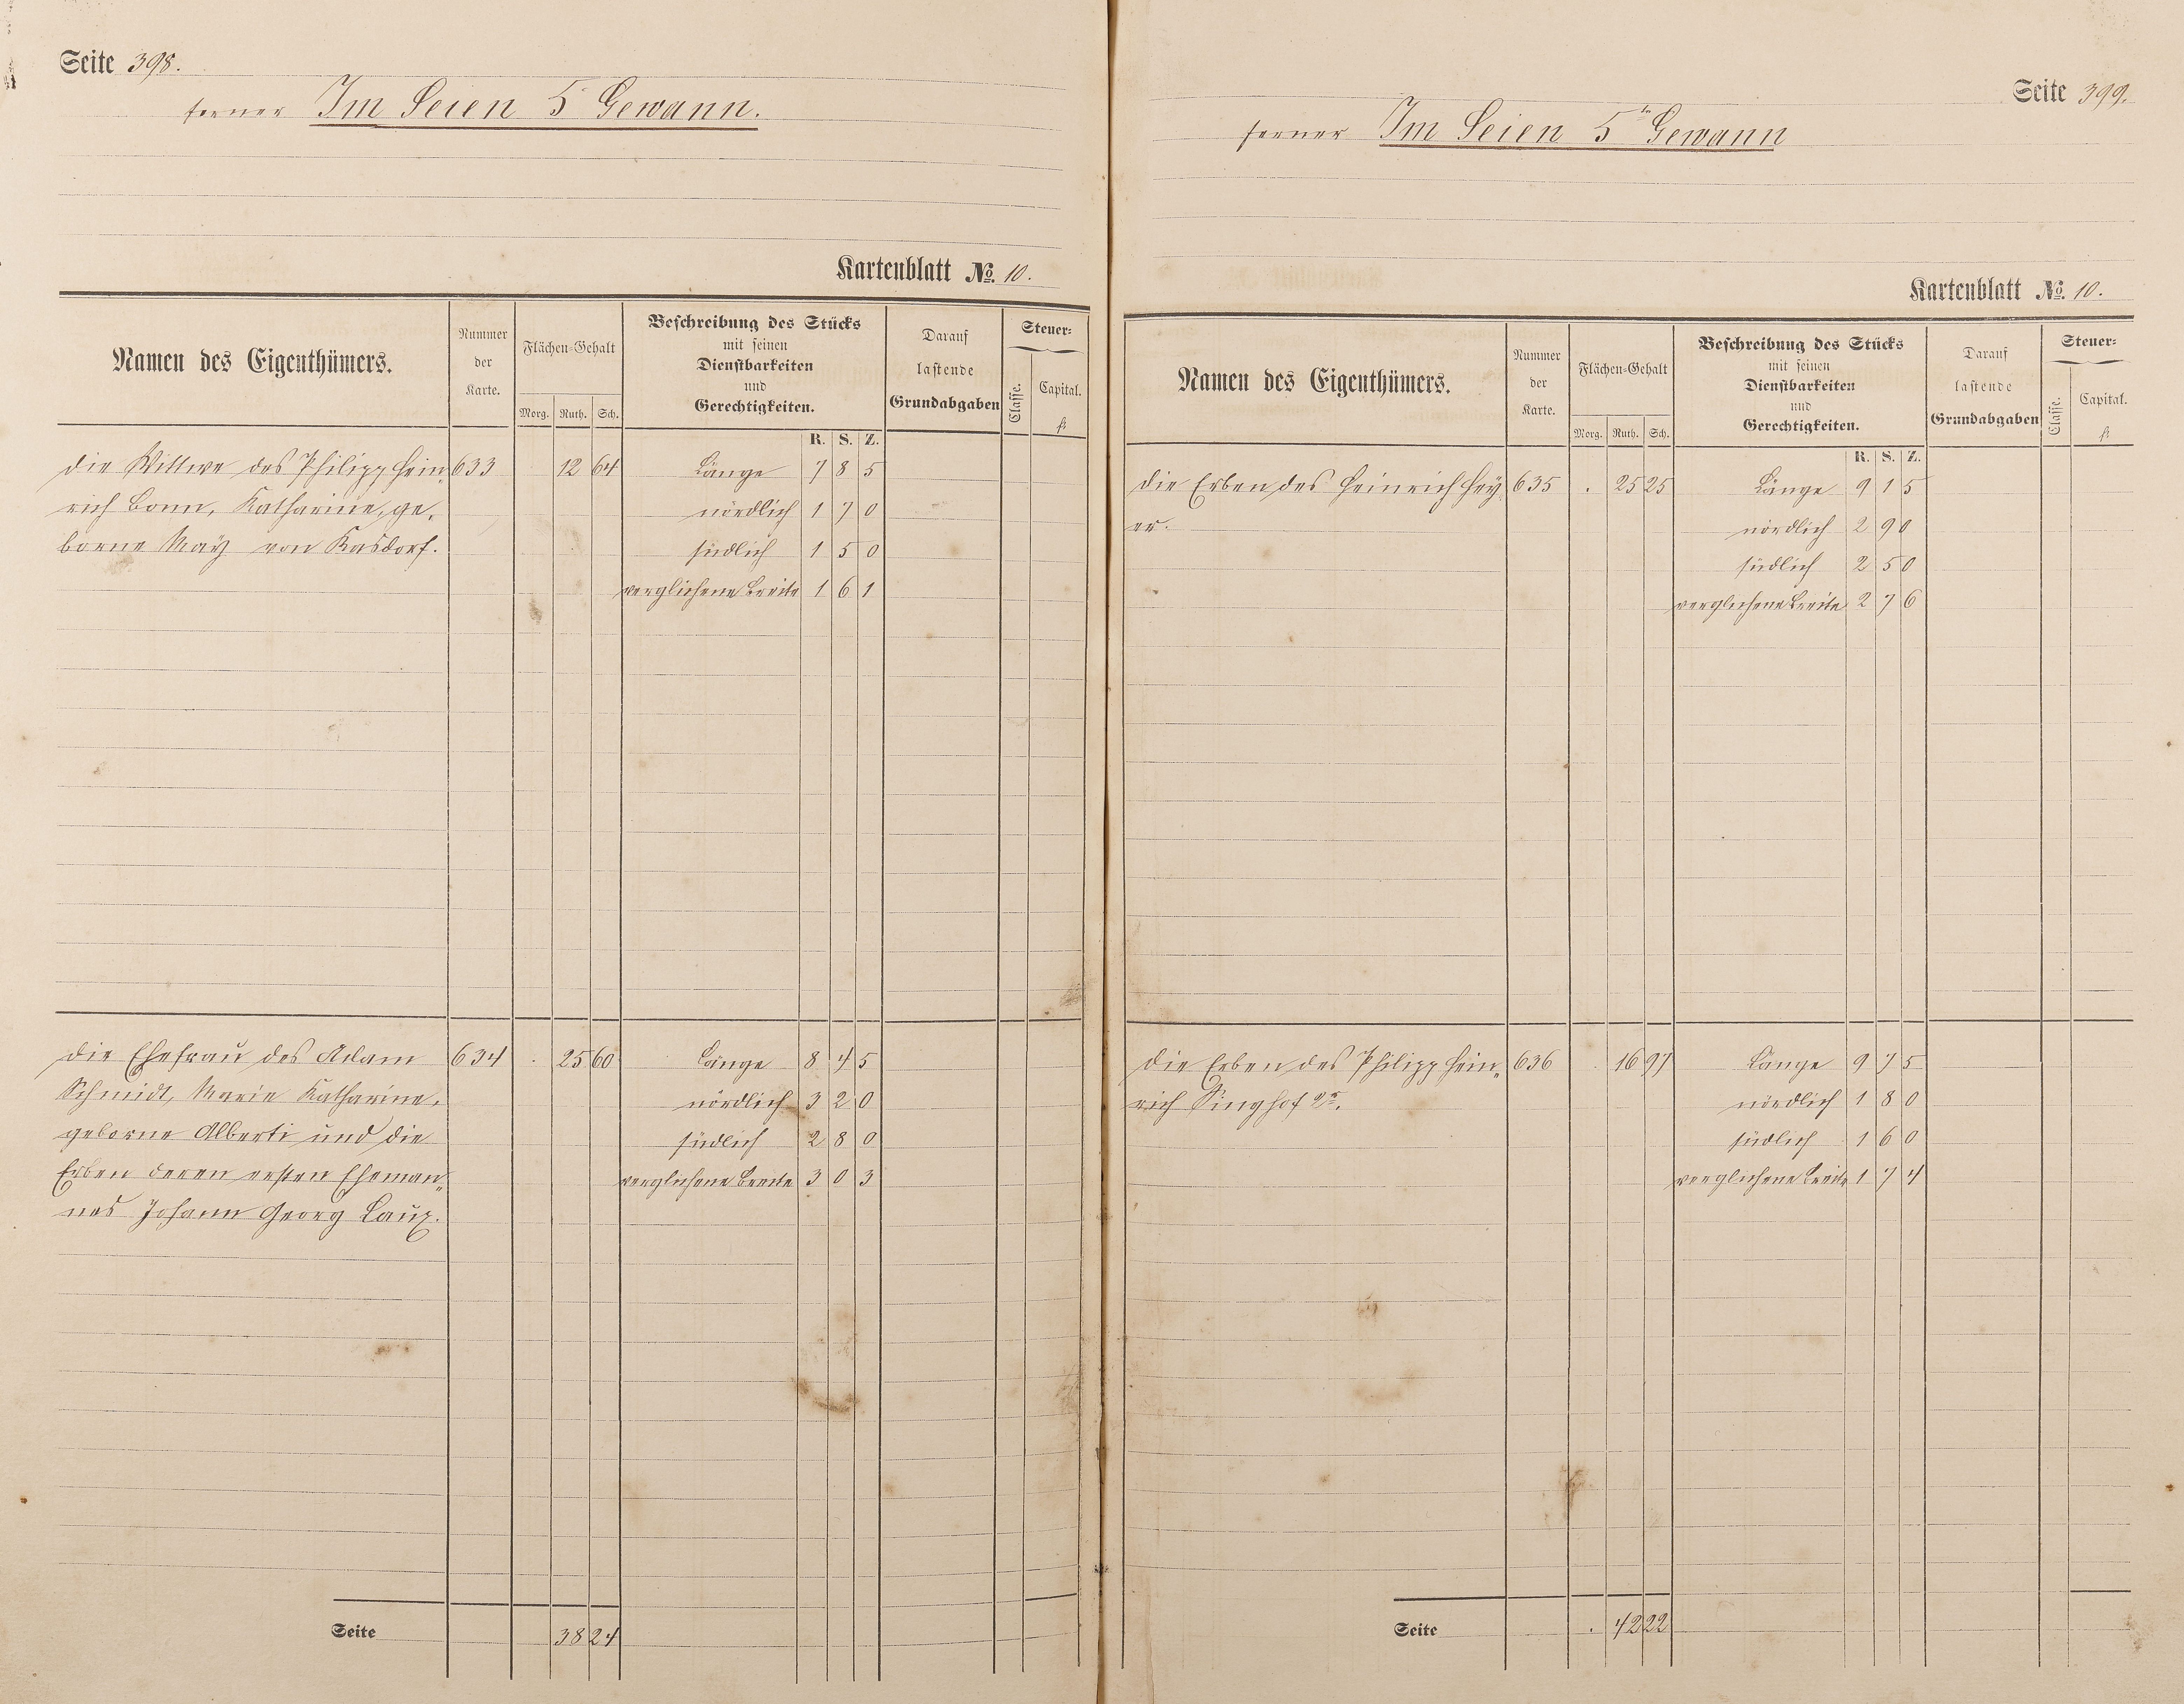 Seite 398.
ferner Im Seien 5 Gewann.
Kartenblatt No. 10.
Namen des Eigenthümers.
Nummer der Karte.
Flächen-Gehalt
Morg. Ruth. Sch.
Beschreibung des Stücks
mit seinen
Dienstbarkeiten
und
Gerechtigkeiten.
Darauf
lastende
Grundabgaben
Steuer-
Classe. Capital.
fl
R. S. Z.
Die Wittwe des Philipp Hein- 633 12 64 Länge 7 8 5
rich Bonn, Katharine, ge- nördlich 1 7 0
borne May von Kasdorf. südlich 1 5 0
verglichene Breite 1 6 1
Die Ehefrau des Adam 634 . 25 60 Länge 8 4 5
Schmidt, Marie Katharine, nördlich 3 2 0
geborne Alberti und die südlich 2 8 0
Erben deren ersten Eheman- verglichene Breite 3 0 3
nes Johann Georg Laux.
Seite 38 24
Seite 399.
ferner Im Seien 5te Gewann
Kartenblatt No. 10.
Namen des Eigenthümers.
Nummer der Karte.
Flächen-Gehalt
Morg. Ruth. Sch.
Beschreibung des Stücks
mit seinen
Dienstbarkeiten
und
Gerechtigkeiten.
Darauf
lastende
Grundabgaben
Steuer-
Classe. Capital.
fl
R. S. Z.
Die Erben des Heinrich Hey 635 . 25 25 Länge 9 1 5
er. nördlich 2 9 0
südlich 2 5 0
verglichene Breite 2 7 6
Die Erben des Philipp Hein- 636 . 16 97 Länge 9 7 5
rich Singhof 2r. nördlich 1 8 0
südlich 1 6 0
verglichene Breite 1 7 4
Seite . 42 22